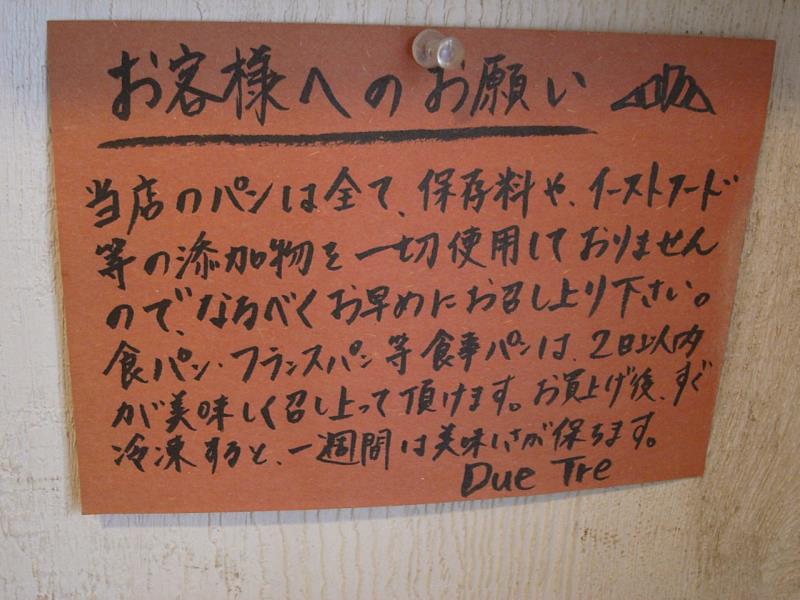 お客様へのお願い
当店のパンは全て、保存料や、イーストフード
等の添加物を一切使用しておりません
ので、なるべくお早めにお召し上り下さい。
食パン・フランスパン等食事パンは、2日以内
が美味しく召し上って頂けます。お買上げ後、すぐ
冷凍すると、一週間は美味さが保ちます。
Due Tre